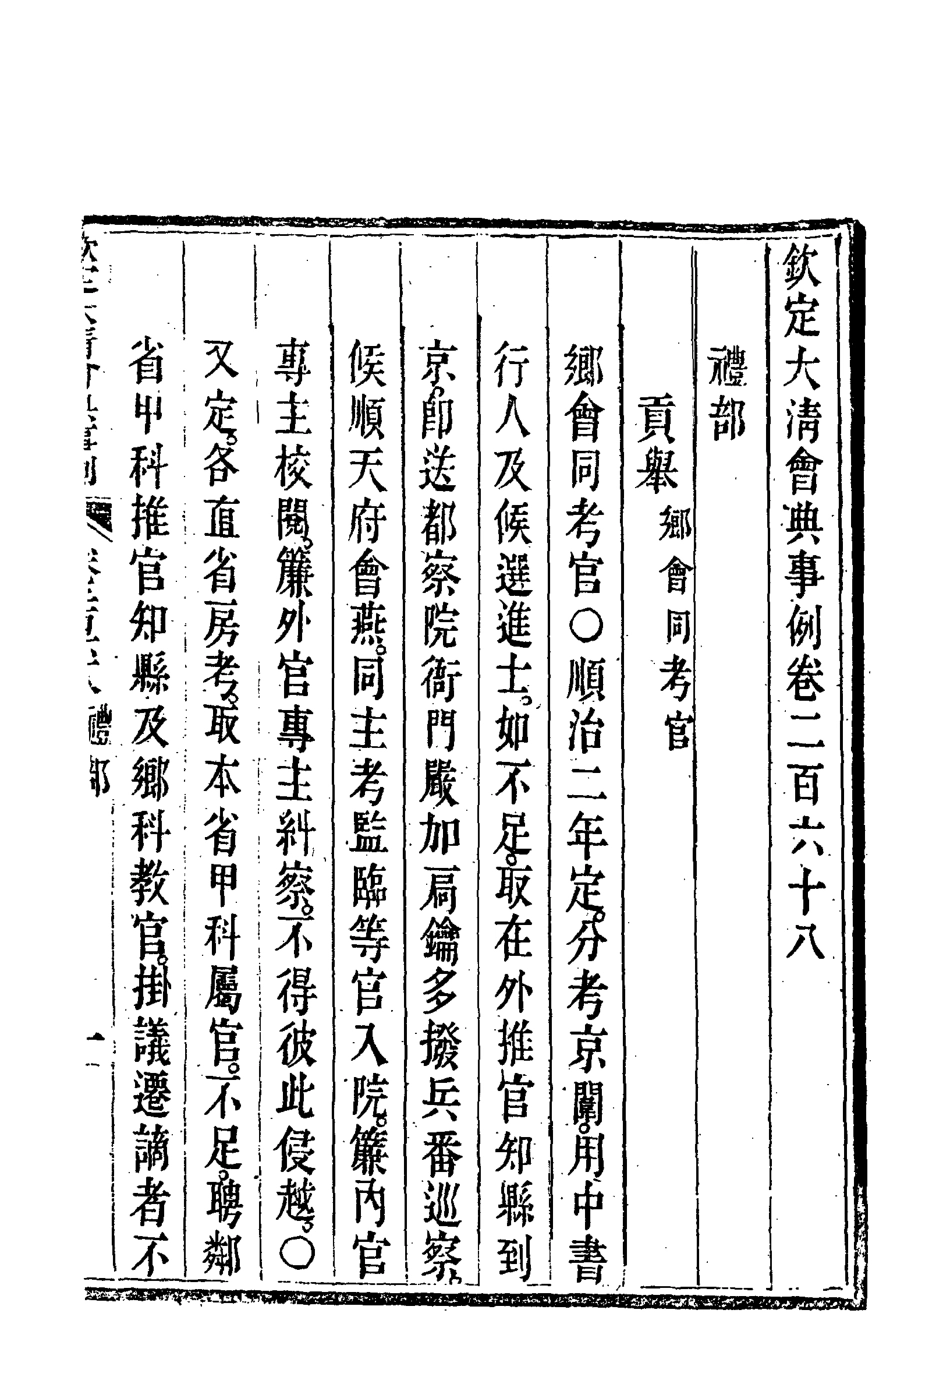 欽定大清會典事例卷二百六十八
禮部
貢舉 鄉會同考官
鄉會同考官〇順治二年定。分考京闈。用中書
行人及候選進士。如不足。取在外推官知縣到
京。卽送都察院衙門嚴加扃鑰多撥兵番巡察。
候順天府會燕。同主考監臨等官入院。簾內官
專主校閱。簾外官專主糾察。不得彼此侵越。〇
又定。各直省房考。取本省甲科屬官。不足。聘鄰
省甲科推官知縣及鄉科教官。掛議遷謫者不
禮部 一